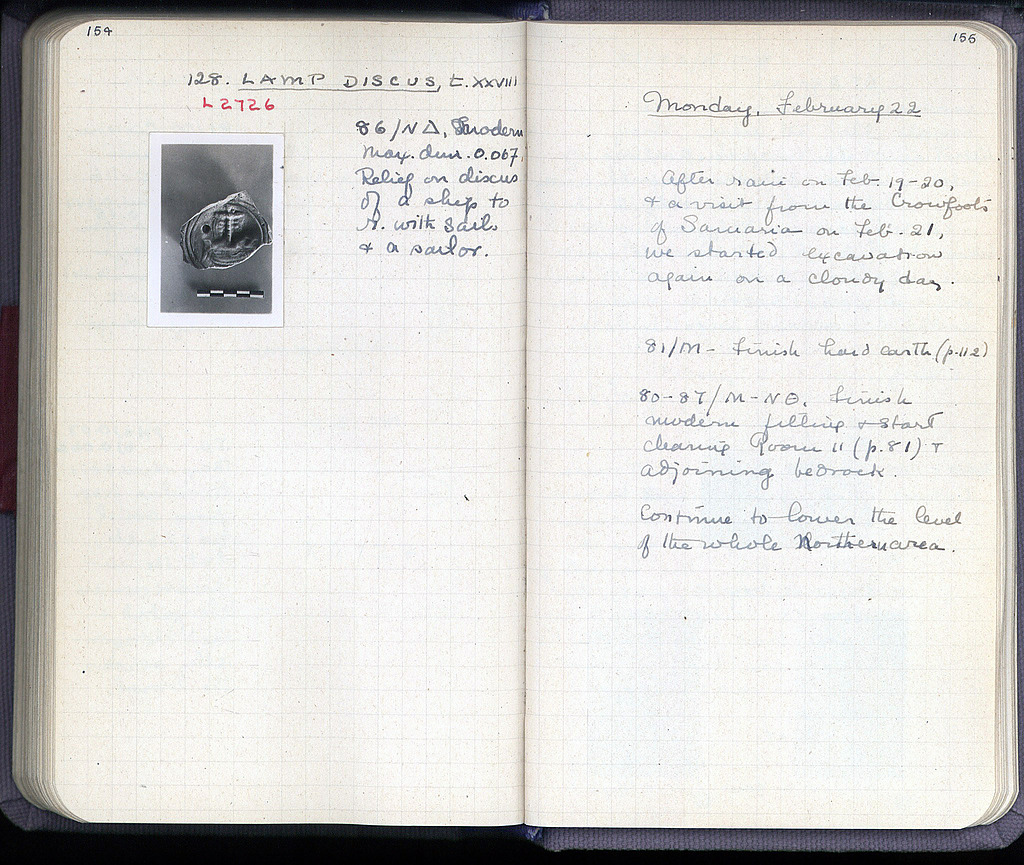 154
128. LAMP DISCUS, t. XXVIII
L 2726
86/NΔ, modern
Max. dim. 0.067
Relief on discus
of a ship to
r. with sails
& a sailor.
155
Monday, February 22
After rain on Feb. 19-20,
& a visit from the Crowfoots
of Samaria on Feb. 21,
we started excavation
again on a cloudy day.
81/M - Finish hard earth (p. 112)
80-87/M-NΘ. Finish
modern filling & start
clearing Room 11 (p. 81) &
adjoining bedrock.
Continue to lower the level
of the whole Northern area.